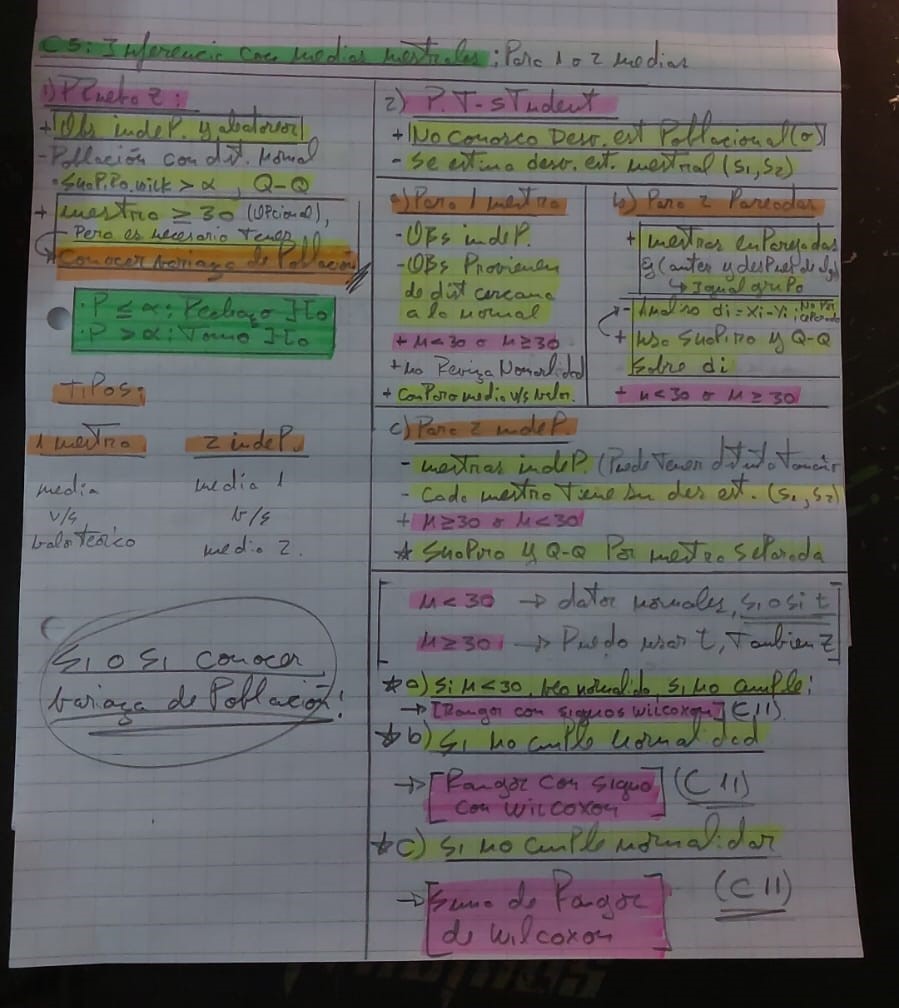 C5: Inferencia con medias mestrales; Para 1 o 2 medias
1) PRueba Z:
+ Obs indeP. y aleatorias
- Población con dist. Normal
· ShaPiro.wilk > α, Q-Q
+ mestra ≥ 30 (OPcional),
- Pero es necesario Tener
* Conocer bariaza de Población
· P ≤ α: Rechazo Ho
· P > α: Tomo Ho
TiPos:
1 mestra
media
v/s
balor Teórico
2 indeP.
media 1
v/s
media 2.
Si o Si conocer
bariaza de Población!
2) P. T-sTudent
+ No conosco Desv. est Poblacional (σ)
- Se estima desv. est. mestral (S1, S2)
a) Para 1 mestra
- OBs indeP.
- OBs Provienen
de dist cercana
a la normal
+ n < 30 o n ≥ 30
+ no Reviza Normalidad
+ comParo media v/s valor.
b) Para 2 Pareadas
+ mestras emParejadas
(antes y desPues de algo)
↳ Igual gruPo
- Analiso di = xi - yi; No Por separado
+ uso ShaPiro y Q-Q
sobre di
+ n < 30 o n ≥ 30
c) Para 2 indeP.
- mestras indeP. (Puede Tener distinto Tamaño
- Cada mestra Tiene su des est. (S1, S2)
+ n ≥ 30 o n < 30
* ShaPiro y Q-Q Por mestra SeParada
n < 30 → datos normales, si o si t
n ≥ 30 → Puedo usar t, Tambien Z
* a) Si n < 30, veo normalida, si no cumple:
→ [Rangos con signos wilcoxon] (C11)
* b) Si no cumple normalidad
→ [Rangos con signo
con wilcoxon] (C11)
* c) Si no cumple normalidar
→ [Suma de Rangos
de wilcoxon] (C11)